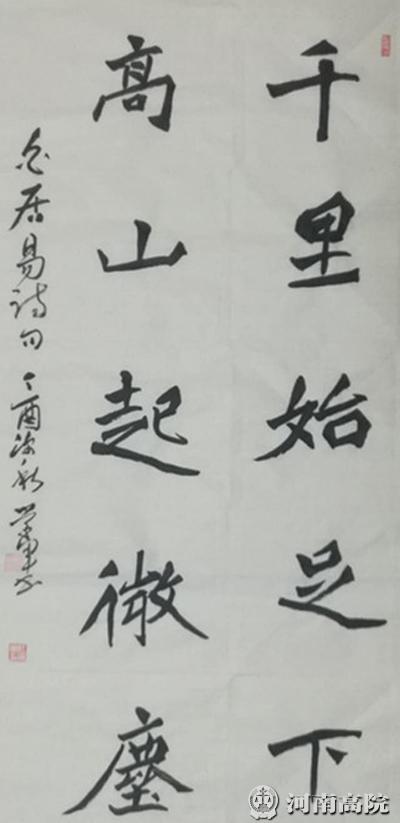 千里始足下
高山起微塵
白居易诗句 丁酉深秋
河南高院